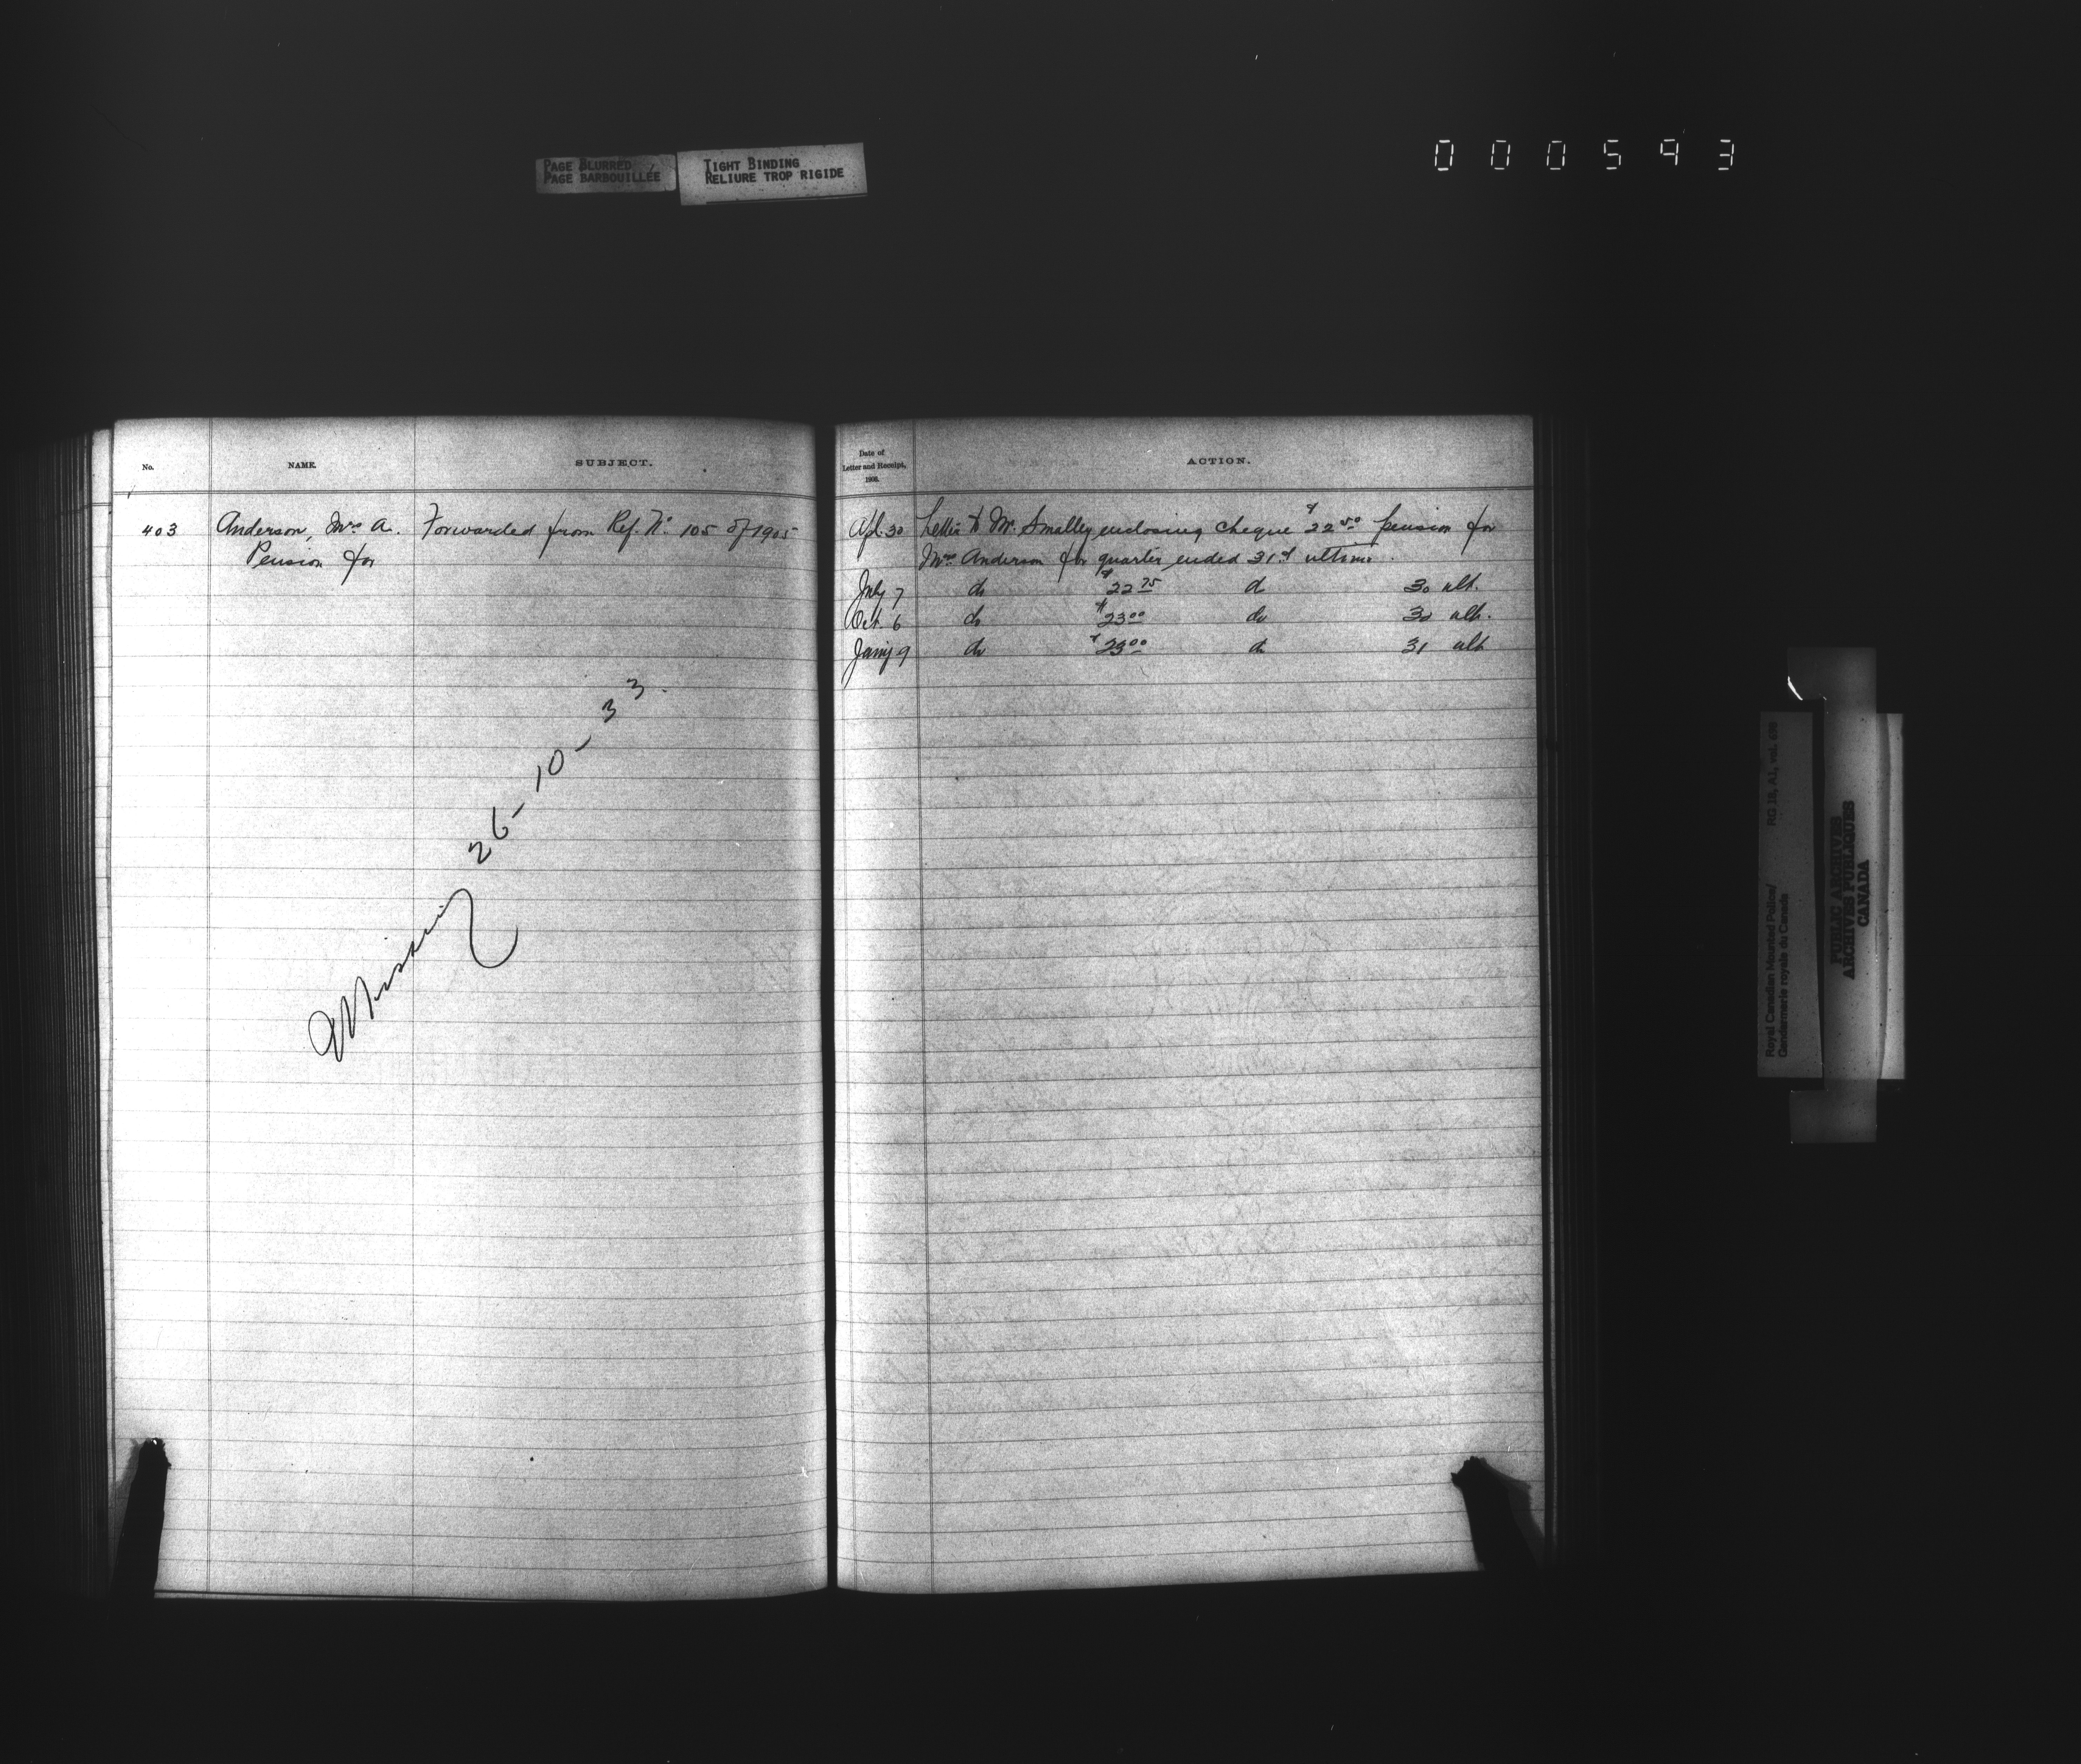 PAGE BLURRED
PAGE BARBOUILLÉE
TIGHT BINDING
RELIURE TROP RIGIDE
000593
No.
NAME.
SUBJECT.
403
Anderson, Mrs A.
Pension for
Forwarded from Ref. No. 105 of 1905
Missing 26-10-33.
Date of
Letter and Receipt,
190
ACTION.
Apl. 30 Letter to Mr. Smalley enclosing cheque $22.50 pension for
Mrs Anderson for quarter ended 31st ultimo.
July 7 do $22.75 do 30 ult.
Oct. 6 do $23.00 do 30 ult.
Jany 9 do $23.00 do 31 ult
Royal Canadian Mounted Police/ RG 18, A1, vol.
Gendarmerie royale du Canada
PUBLIC ARCHIVES
ARCHIVES PUBLIQUES
CANADA